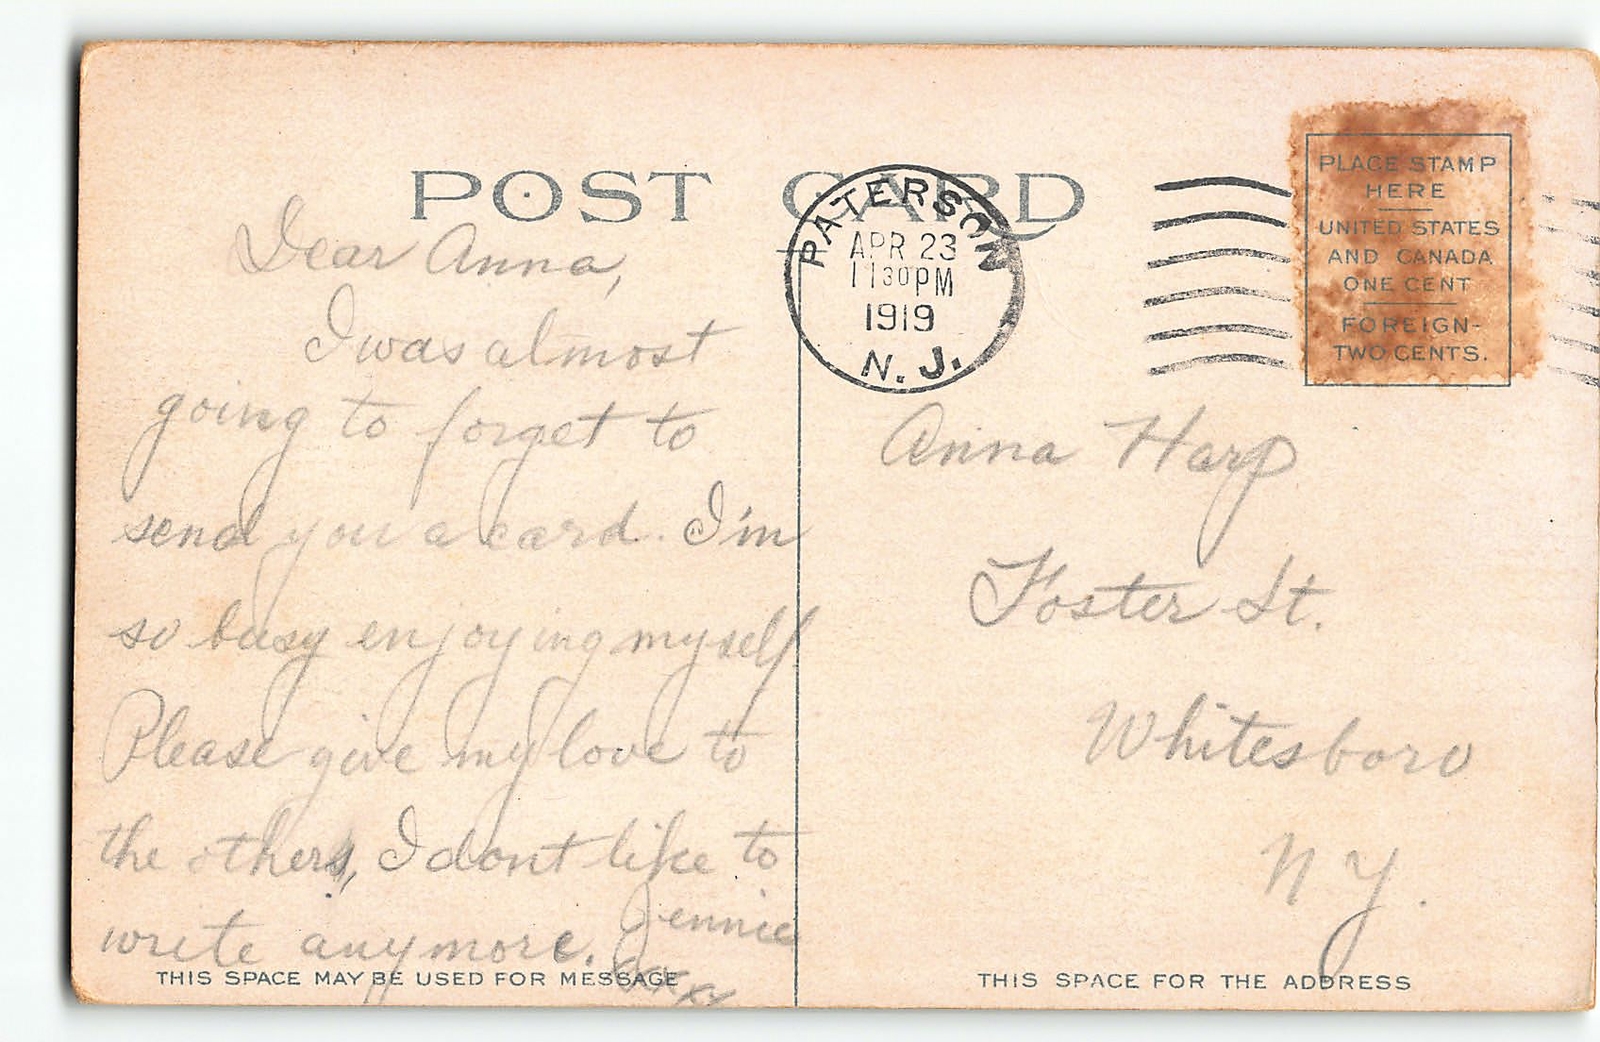 POST CARD
PATERSON
APR 23
11 30 PM
1919
N. J.
PLACE STAMP
HERE
UNITED STATES
AND CANADA
ONE CENT
FOREIGN-
TWO CENTS.
Dear Anna,
I was almost
going to forget to
send you a card. I'm
so busy enjoying myself
Please give my love to
the others, I dont like to
write anymore. Jennie
xxxx
THIS SPACE MAY BE USED FOR MESSAGE
Anna Harp
Foster St.
Whitesboro
N Y.
THIS SPACE FOR THE ADDRESS